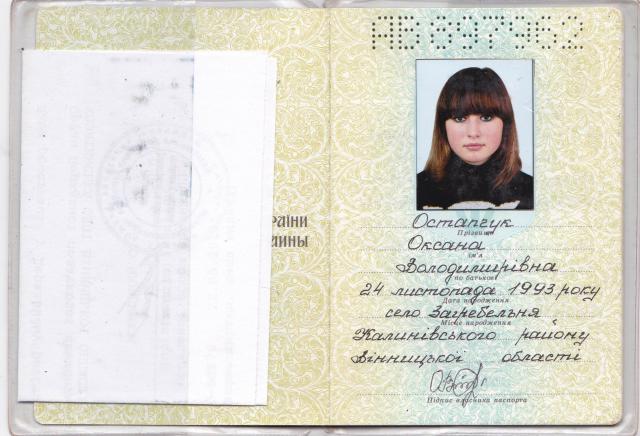 АВ 397462
раїни
аины
Остапчук
Прізвище
Оксана
Ім'я
Володимирівна
по батькові
24 листопада 1993 року
Дата народження
село Загребельня
Місце народження
Калинівського району
Вінницької області
Підпис власника паспорта